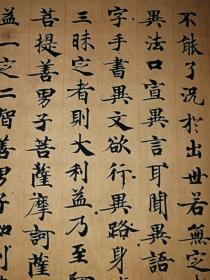 不能了況於出世若無定
異法口宣異言耳聞異語
字手書異文欲行異路身
三昧定者則大利益乃至
菩提善男子菩薩摩訶薩
益一定二智善男子如刈